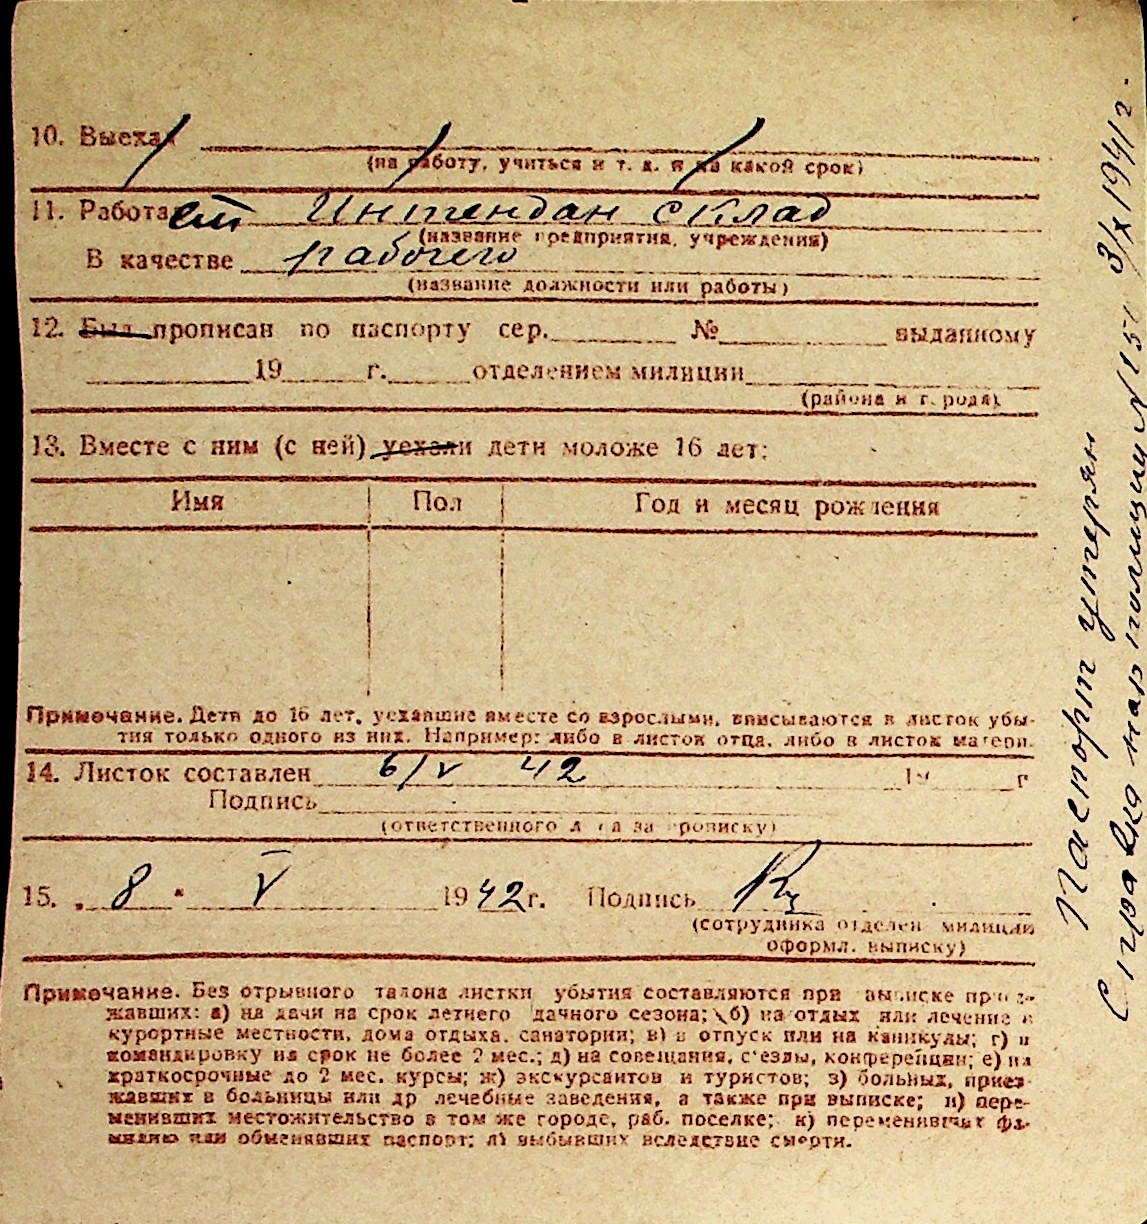 10. Выехал
(на работу, учиться и т. д. и на какой срок)
11. Работает Интендан склад
(название предприятия, учреждения)
В качестве рабочего
(название должности или работы)
12. Был прописан по паспорту сер. № выданному
19 г. отделением милиции
(района и города)
13. Вместе с ним (с ней) уехали дети моложе 16 лет:
Имя Пол Год и месяц рождения
Примечание. Дети до 16 лет, уехавшие вместе со взрослыми, вписываются в листок убы-
тия только одного из них. Например: либо в листок отца, либо в листок матери.
14. Листок составлен 6/V 42 19 г
Подпись
(ответственного лица за прописку)
15. „ 8 " V 1942 г. Подпись
(сотрудника отделен милиции
оформл. выписку)
Примечание. Без отрывного талона листки убытия составляются при выписке приез-
жавших: а) на дачи на срок летнего дачного сезона; б) на отдых или лечение в
курортные местности, дома отдыха, санатории; в) в отпуск или на каникулы; г) в
командировку на срок не более 2 мес.; д) на совещания, с'езды, конференции; е) на
краткосрочные до 2 мес. курсы; ж) экскурсантов и туристов; з) больных, приез-
жавших в больницы или др лечебные заведения, а также при выписке; и) пере-
менивших местожительство в том же городе, раб. поселке; к) переменивших фа-
милию или обменявших паспорт; л) выбывших вследствие смерти.
Паспорт утерян
Справка нар полиции N 151 3/X 1941 г.